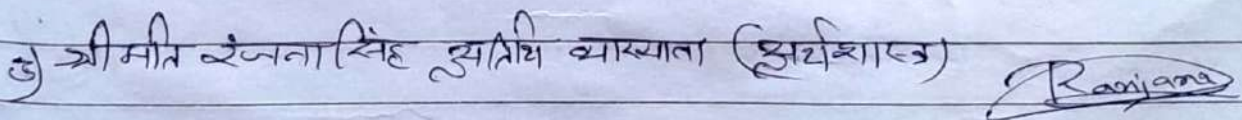 3) श्रीमति रंजना सिंह अतिथि व्याख्याता (अर्थशास्त्र)
Ranjana